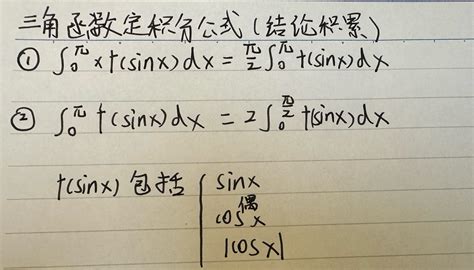 三角函数定积分公式(结论积累)
① ∫₀^π x f(sinx) dx = π/2 ∫₀^π f(sinx) dx
② ∫₀^π f(sinx) dx = 2∫₀^(π/2) f(sinx) dx
f(sinx) 包括 { sinx
cos^偶 x
|cosx|